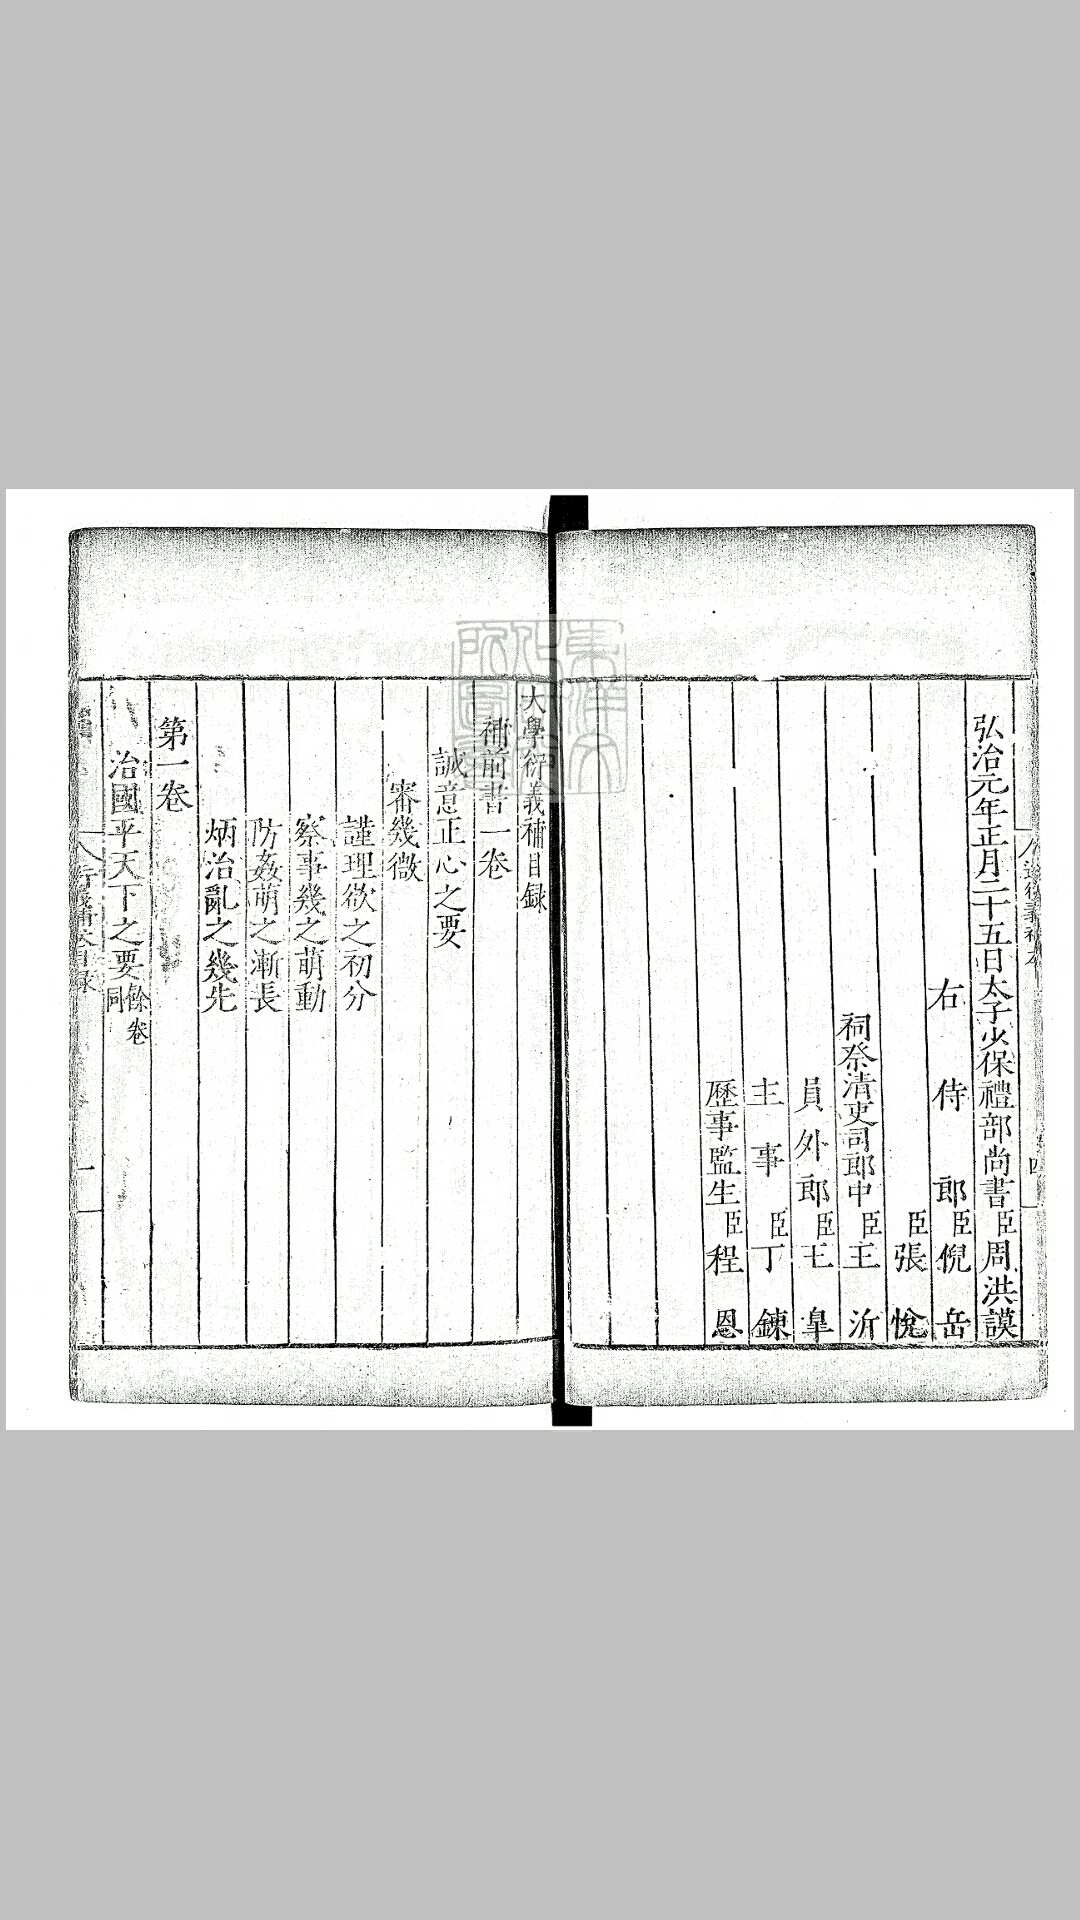 弘治元年正月二十五日太子少保禮部尚書臣周洪謨
右侍郎臣倪岳
臣張悅
祠祭清吏司郎中臣王沂
員外郎臣王皐
主事臣丁鍊
歷事監生臣程恩
大學衍義補目録
補前書一卷
誠意正心之要
審幾微
謹理欲之初分
察事幾之萌動
防姦萌之漸長
炳治亂之幾先
第一卷
治國平天下之要餘卷同